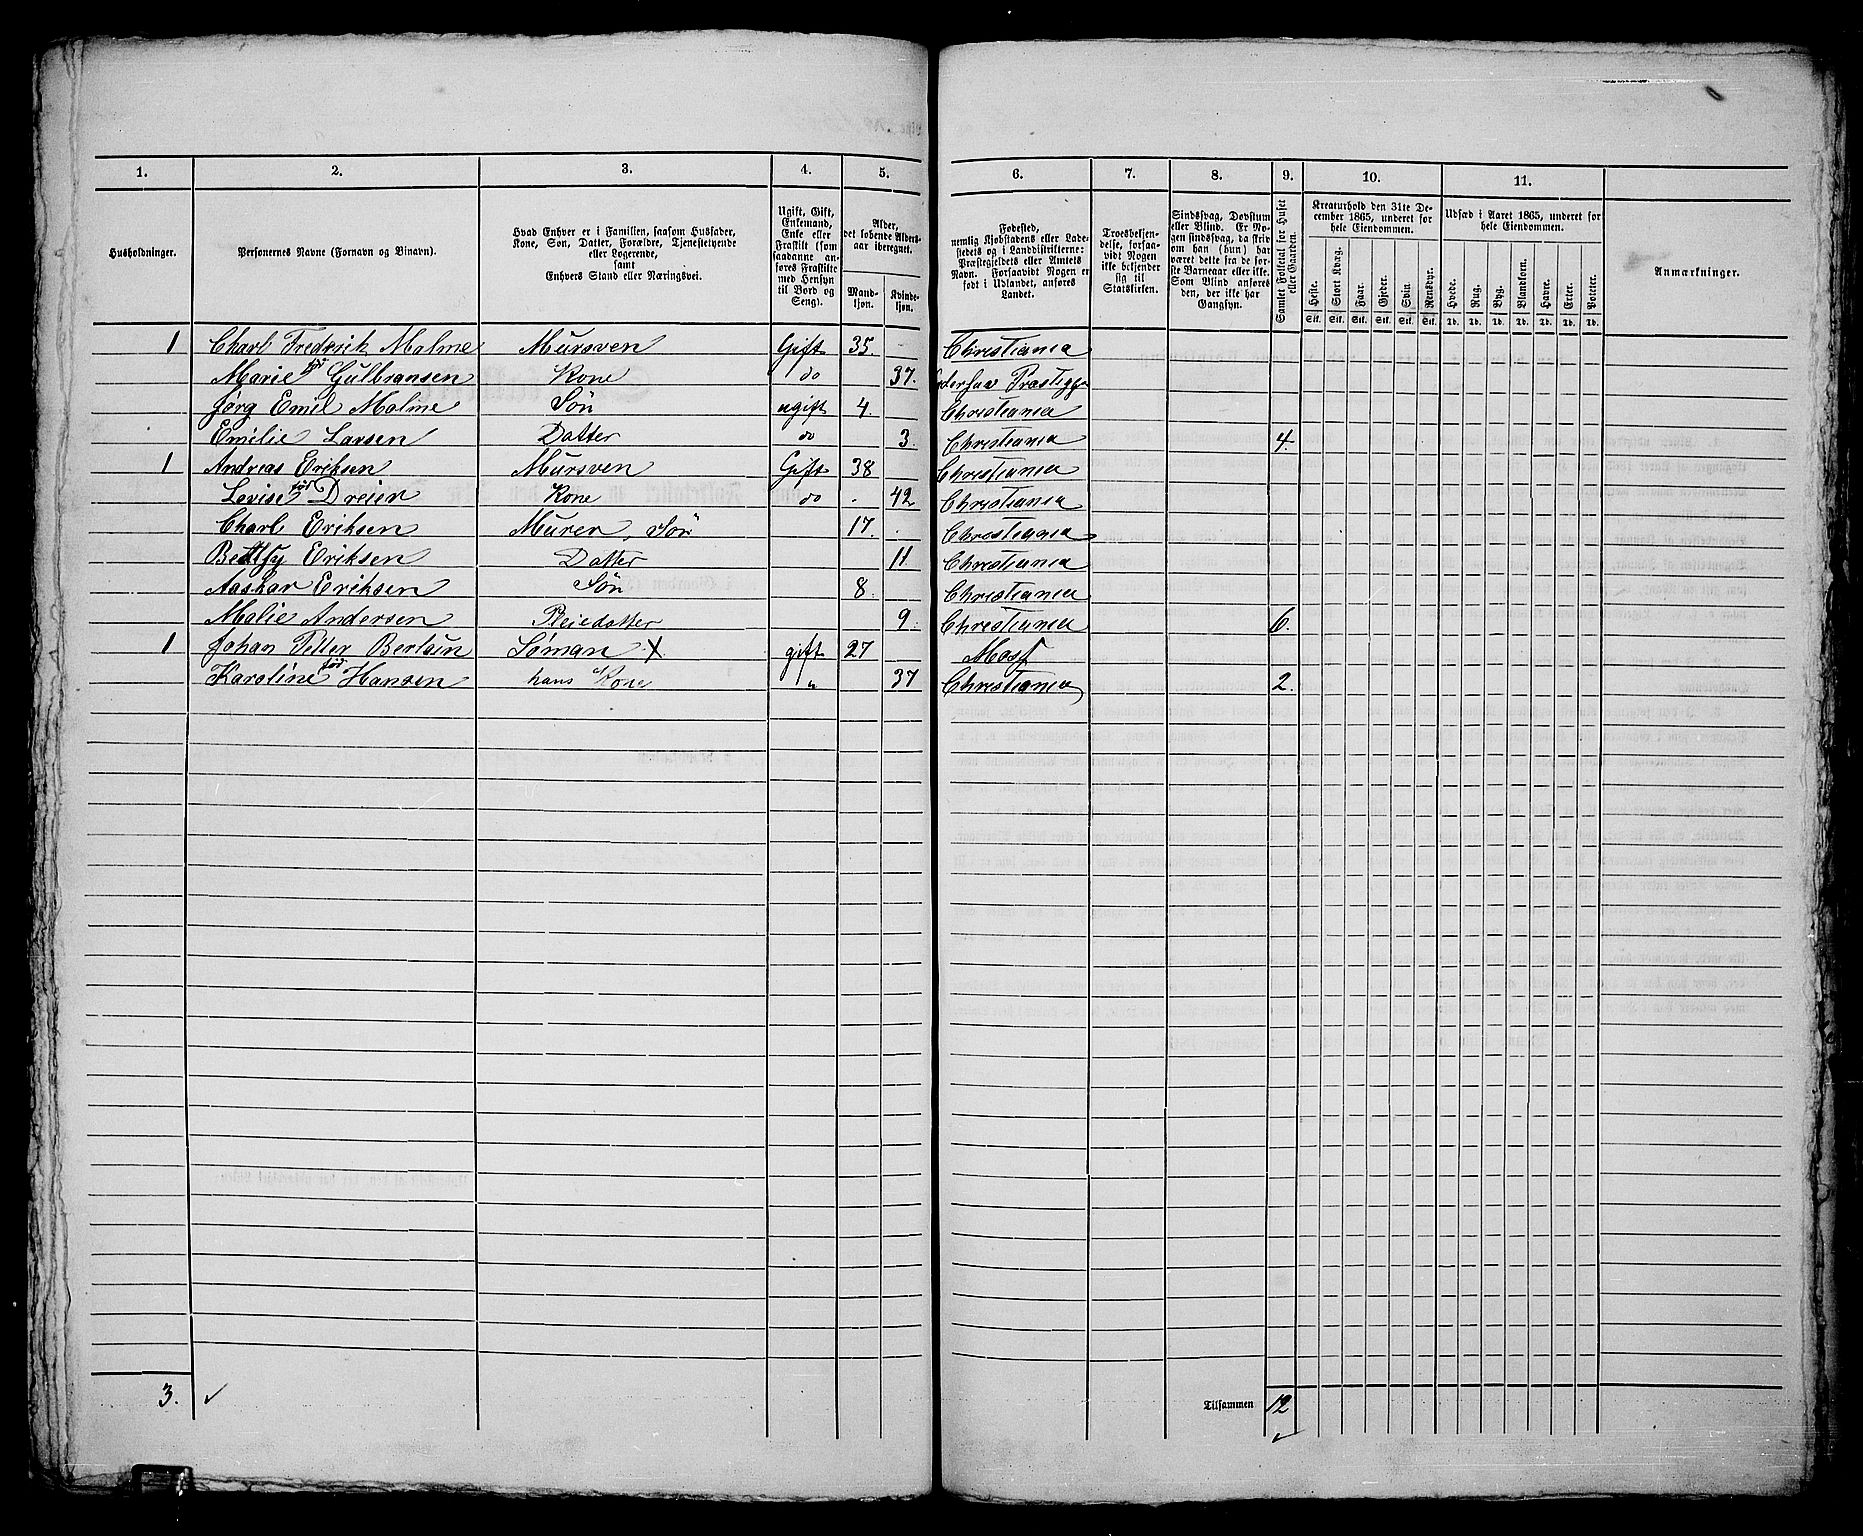 1. 2. 3. 4. 5. 6. 7. 8. 9. 10. 11.
Husholdninger.
Personernes Navne (Fornavn og Binavn).
Hvad Enhver er i Familien, saasom Husfader,
Kone, Søn, Datter, Forældre, Tjenestetyende
eller Logerende,
samt
Enhvers Stand eller Næringsvei.
Ugift, Gift,
Enkemand,
Enke eller
Fraskilt (som
saadanne an-
føres Fraskilte
med Hensyn
til Bord og
Seng).
Alder,
det løbende Alders-
aar iberegnet.
Mand-
kjøn.
Kvinde-
kjøn.
Fødested,
nemlig Kjøbstadens eller Lade-
stedets og i Landdistrikterne:
Præstegjeldets eller Amtets
Navn. Forsaavidt Nogen er
født i Udlandet, anføres
Landet.
Troesbekjen-
delse, forsaa-
vidt Nogen
ikke bekjender
sig til
Statskirken.
Sindssvag, Døvstum
eller Blind. Er No-
gen sindssvag, da skriv
om han (hun) har
været dette fra de før-
ste Barneaar eller ikke.
Som Blind anføres
den, der ikke har
Gangsyn.
Samlet Folketal for Huset
eller Gaarden.
Kreaturhold den 31te De-
cember 1865, underet for
hele Eiendommen.
Heste. Stort Kvæg. Faar. Gjeder. Svin. Rensdyr.
Stk. Stk. Stk. Stk. Stk. Stk.
Udsæd i Aaret 1865, underet for
hele Eiendommen.
Hvede. Rug. Byg. Blandkorn. Havre. Erter. Poteter.
Td. Td. Td. Td. Td. Td. Td.
Anmærkninger.
1 Charl Fredrick Malme Mursven Gift 35. Christiania
Marie fød Gulbransen Kone do 37.
Jørg Emil Malme Søn ugift 4. Christiania
Emilie Larsen Datter do 3. Christiania 4.
1 Andreas Eriksen Mursven Gift 38 Christiania
Levise fød Dreier Kone do 42 Christiania
Charl Eriksen Murer, Søn 17. Christiania
Betsy Eriksen Datter 11 Christiania
Aaskar Eriksen Søn 8. Christiania
Malie Andersen Pleiedatter 9. Christiania 6.
1 Johan Petter Bertsin Søman X gift 27 Moss
Karoline fød Hansen hans Kone " 37 Christiania 2.
3. ✓ Tilsammen 12 ✓